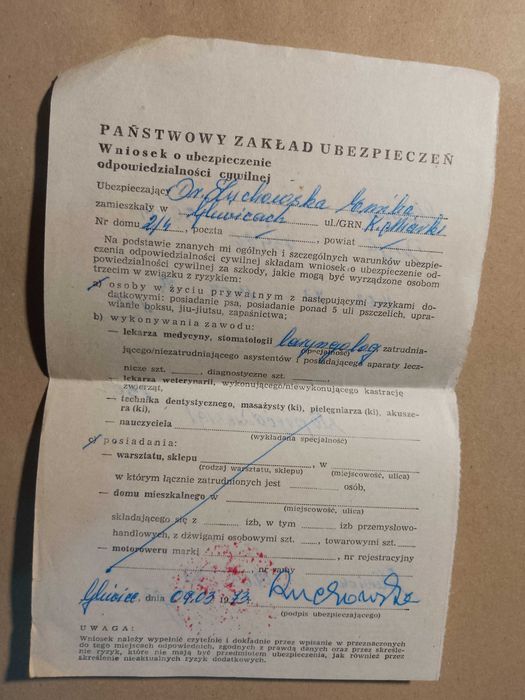 PAŃSTWOWY ZAKŁAD UBEZPIECZEŃ
Wniosek o ubezpieczenie
odpowiedzialności cywilnej
Ubezpieczający Dr
zamieszkały w Gliwicach ul./GRN
Nr domu 2/4, poczta , powiat
Na podstawie znanych mi ogólnych i szczególnych warunków ubezpie-
czenia odpowiedzialności cywilnej składam wniosek o ubezpieczenie od-
powiedzialności cywilnej za szkody, jakie mogą być wyrządzone osobom
trzecim w związku z ryzykiem:
a) osoby w życiu prywatnym z następującymi ryzykami do-
datkowymi: posiadanie psa, posiadanie ponad 5 uli pszczelich, upra-
wianie boksu, jiu-jitsu, zapaśnictwa;
b) wykonywania zawodu:
— lekarza medycyny, stomatologii laryngolog zatrudnia-
(specjalność)
jącego/niezatrudniającego asystentów i posiadającego aparaty lecz-
nicze szt. , diagnostyczne szt.
— lekarza weterynarii, wykonującego/niewykonującego kastrację
zwierząt,
— technika dentystycznego, masażysty (ki), pielęgniarza (ki), akusze-
ra (ki),
— nauczyciela
(wykładana specjalność)
c) posiadania:
— warsztatu, sklepu , w
(rodzaj warsztatu, sklepu) (miejscowość, ulica)
w którym łącznie zatrudnionych jest osób,
— domu mieszkalnego w
(miejscowość, ulica)
składającego się z izb, w tym izb przemysłowo-
handlowych, z dźwigami osobowymi szt. , towarowymi szt.
— motoroweru marki , nr rejestracyjny
, nr ramy
Gliwice, dnia 09.03 1973.
(podpis ubezpieczającego)
UWAGA:
Wniosek należy wypełnić czytelnie i dokładnie przez wpisanie w przeznaczonych
do tego miejscach odpowiednich, zgodnych z prawdą danych oraz przez skreśle-
nie ryzyk, które nie mają być przedmiotem ubezpieczenia, jak również przez
skreślenie nieaktualnych ryzyk dodatkowych.